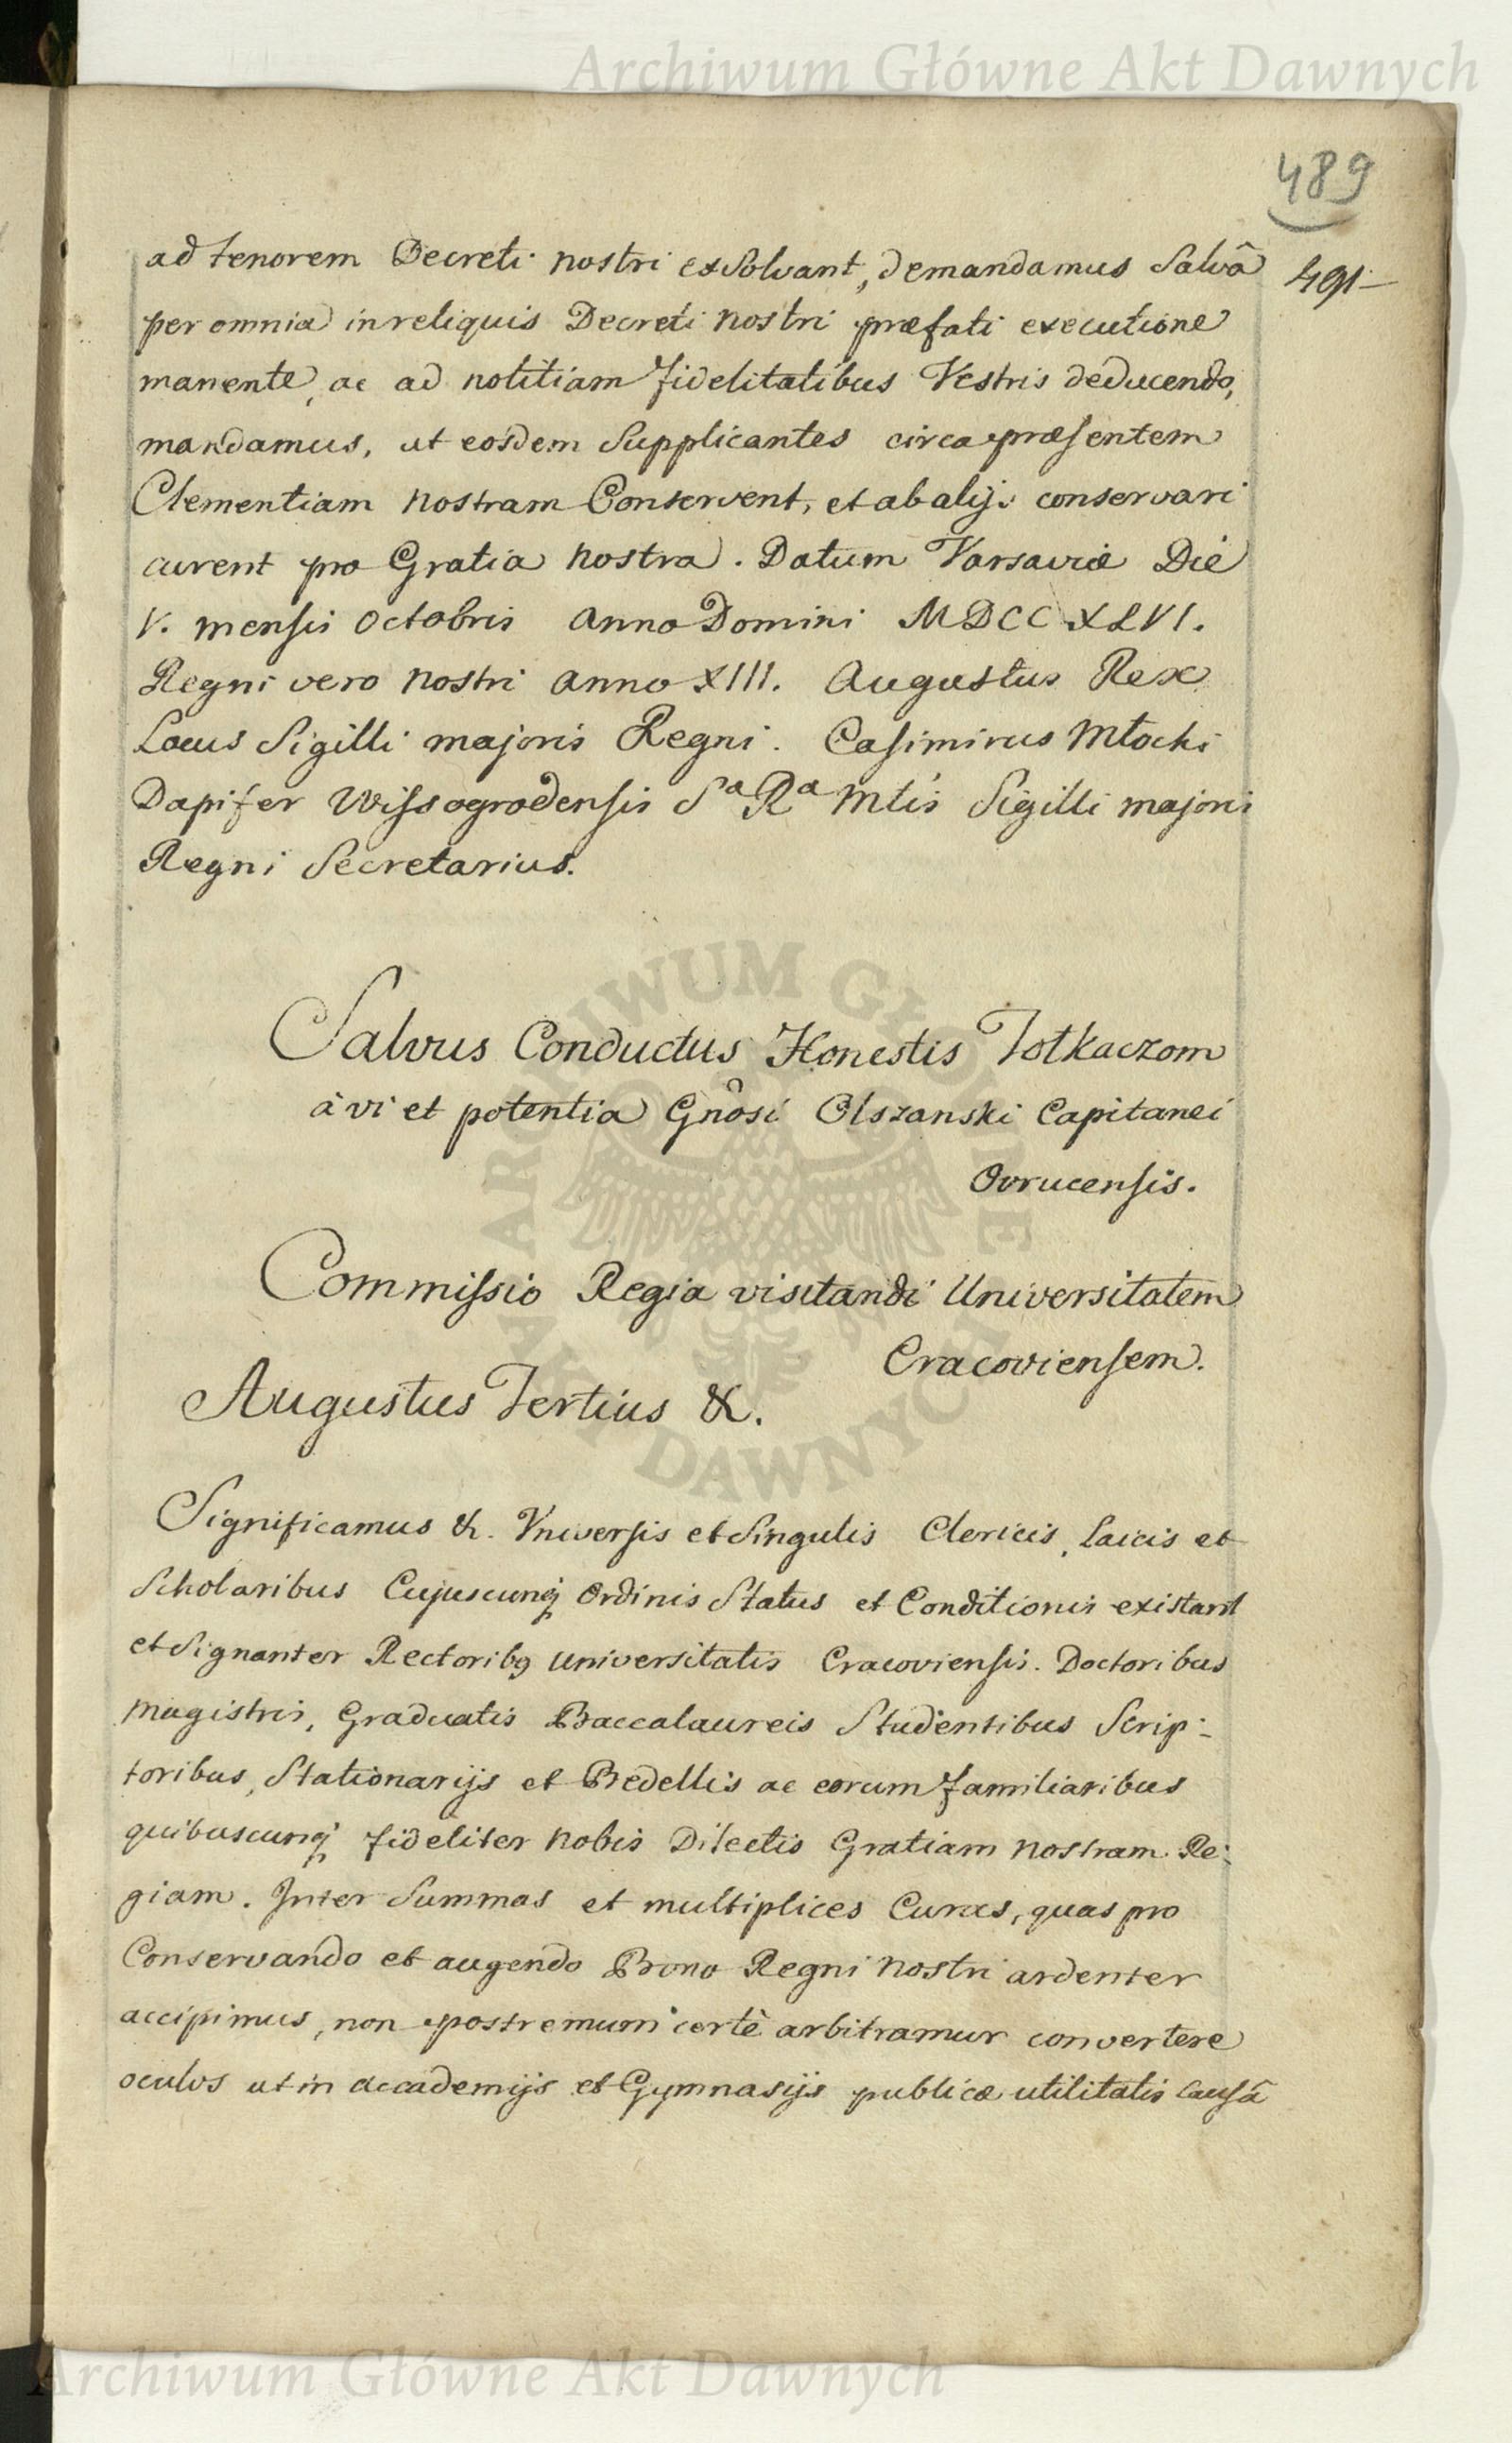 Archiwum Główne Akt Dawnych
489
491
ad tenorem Decreti nostri exsolvant, demandamus Salvâ
per omnia in reliquis Decreti nostri præfati executione
manente, ac ad notitiam fidelitatibus Vestris deducendo,
mandamus, ut eosdem Supplicantes circa præsentem
Clementiam nostram Conservent, et ab alijs conservari
curent pro Gratia nostra. Datum Varsaviæ Die
V. mensis Octobris Anno Domini MDCCXLVI.
Regni vero nostri anno XIII. Augustus Rex
Locus Sigilli majoris Regni. Casimirus Młocki
Dapifer Wissogrodensis Sa Ra Mtis Sigilli majoris
Regni Secretarius.
Salvus Conductus Honestis Tołkaczom
à vi et potentia Gnosi Olszanski Capitanei
Ovrucensis.
Commissio Regia visitandi Universitatem
Cracoviensem.
Augustus Tertius &.
Significamus &. Vniversis et Singulis Clericis, Laicis et
Scholaribus Cujuscunq Ordinis Status et Conditionis existant
et Signanter Rectoribq Universitatis Cracoviensis. Doctoribus
Magistris, Graduatis Baccalaureis Studentibus Scrip-
toribus, Stationarijs et Bedellis ac eorum familiaribus
quibuscunq fideliter Nobis Dilectis Gratiam nostram Re-
giam. Inter Summas et multiplices Curas, quas pro
Conservando et augendo Bono Regni nostri ardenter
accipimus, non postremum certè arbitramur convertere
oculos ut in accademijs et Gymnasijs publicæ utilitatis causâ
ARCHIWUM GŁÓWNE AKT DAWNYCH
Archiwum Główne Akt Dawnych